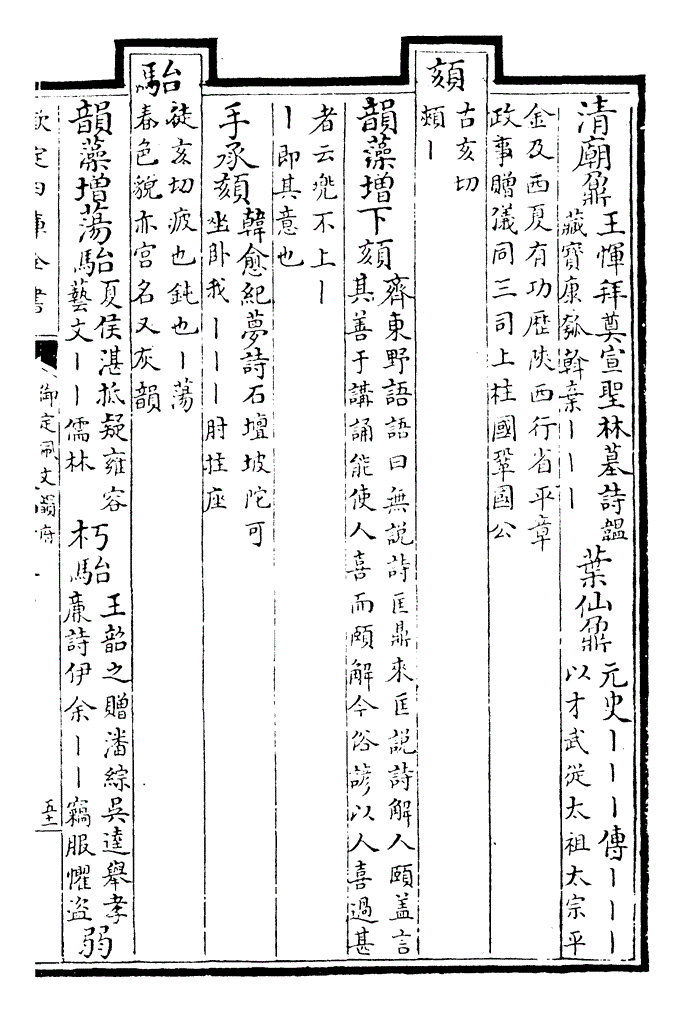 清廟鼐
王惲拜奠宣聖林墓詩韞
藏寶康瓠斡棄丨丨丨
葉仙鼐
元史丨丨丨傳丨丨丨
以才武從太祖太宗平
金及西夏有功歷陜西行省平章
政事贈儀同三司上柱國鞏國公
頦
古亥切
頰丨
韻藻增下頦
齊東野語語曰無說詩匡鼎來匡說詩解人頤盖言
其善于講誦能使人喜而頤解今俗諺以人喜過甚
者云兠不上丨
丨即其意也
手承頦
韓愈紀夢詩石壇坡陀可
坐卧我丨丨丨肘拄座
駘
徒亥切疲也鈍也丨蕩
春色貌亦宫名又灰韻
韻藻增蕩駘
夏侯湛抵疑雍容
藝文丨丨儒林
朽駘
王韶之贈潘綜吳逵舉孝
亷詩伊余丨丨竊服懼盜
弱
欽定四庫全書
御定佩文韻府